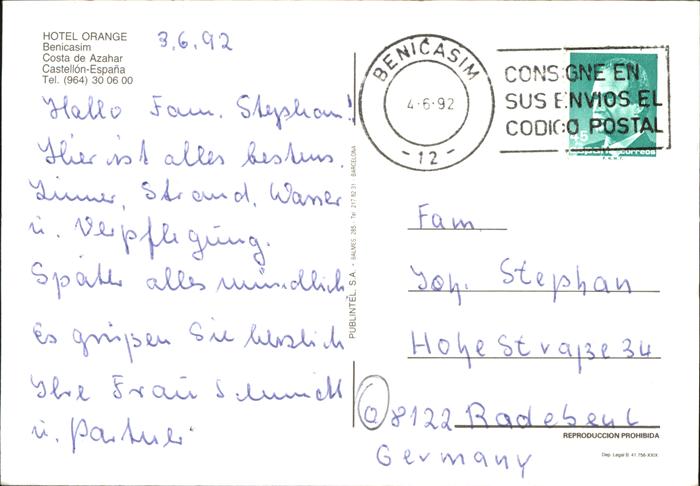 HOTEL ORANGE
Benicasim
Costa de Azahar
Castellón-España
Tel. (964) 30 06 00
3.6.92
Hallo Fam. Stephan!
Hier ist alles bestens.
Zimmer, Strand, Wasser
u. Verpflegung.
Später alles mündlich
Es grüßen Sie herzlich
Ihre Frau Schmidt
u. Partner
PUBLINTEL, S.A. - BALMES, 285 - Tel. 217 82 31 - BARCELONA
BENICASIM
4-6-92
-12-
CONSIGNE EN
SUS ENVIOS EL
CODIGO POSTAL
45
correos
F.N.M.T.
Fam.
Joh. Stephan
Hohe Straße 34
O 8122 Radebeul
REPRODUCCION PROHIBIDA
Dep. Legal B. 41.756-XXIX
Germany